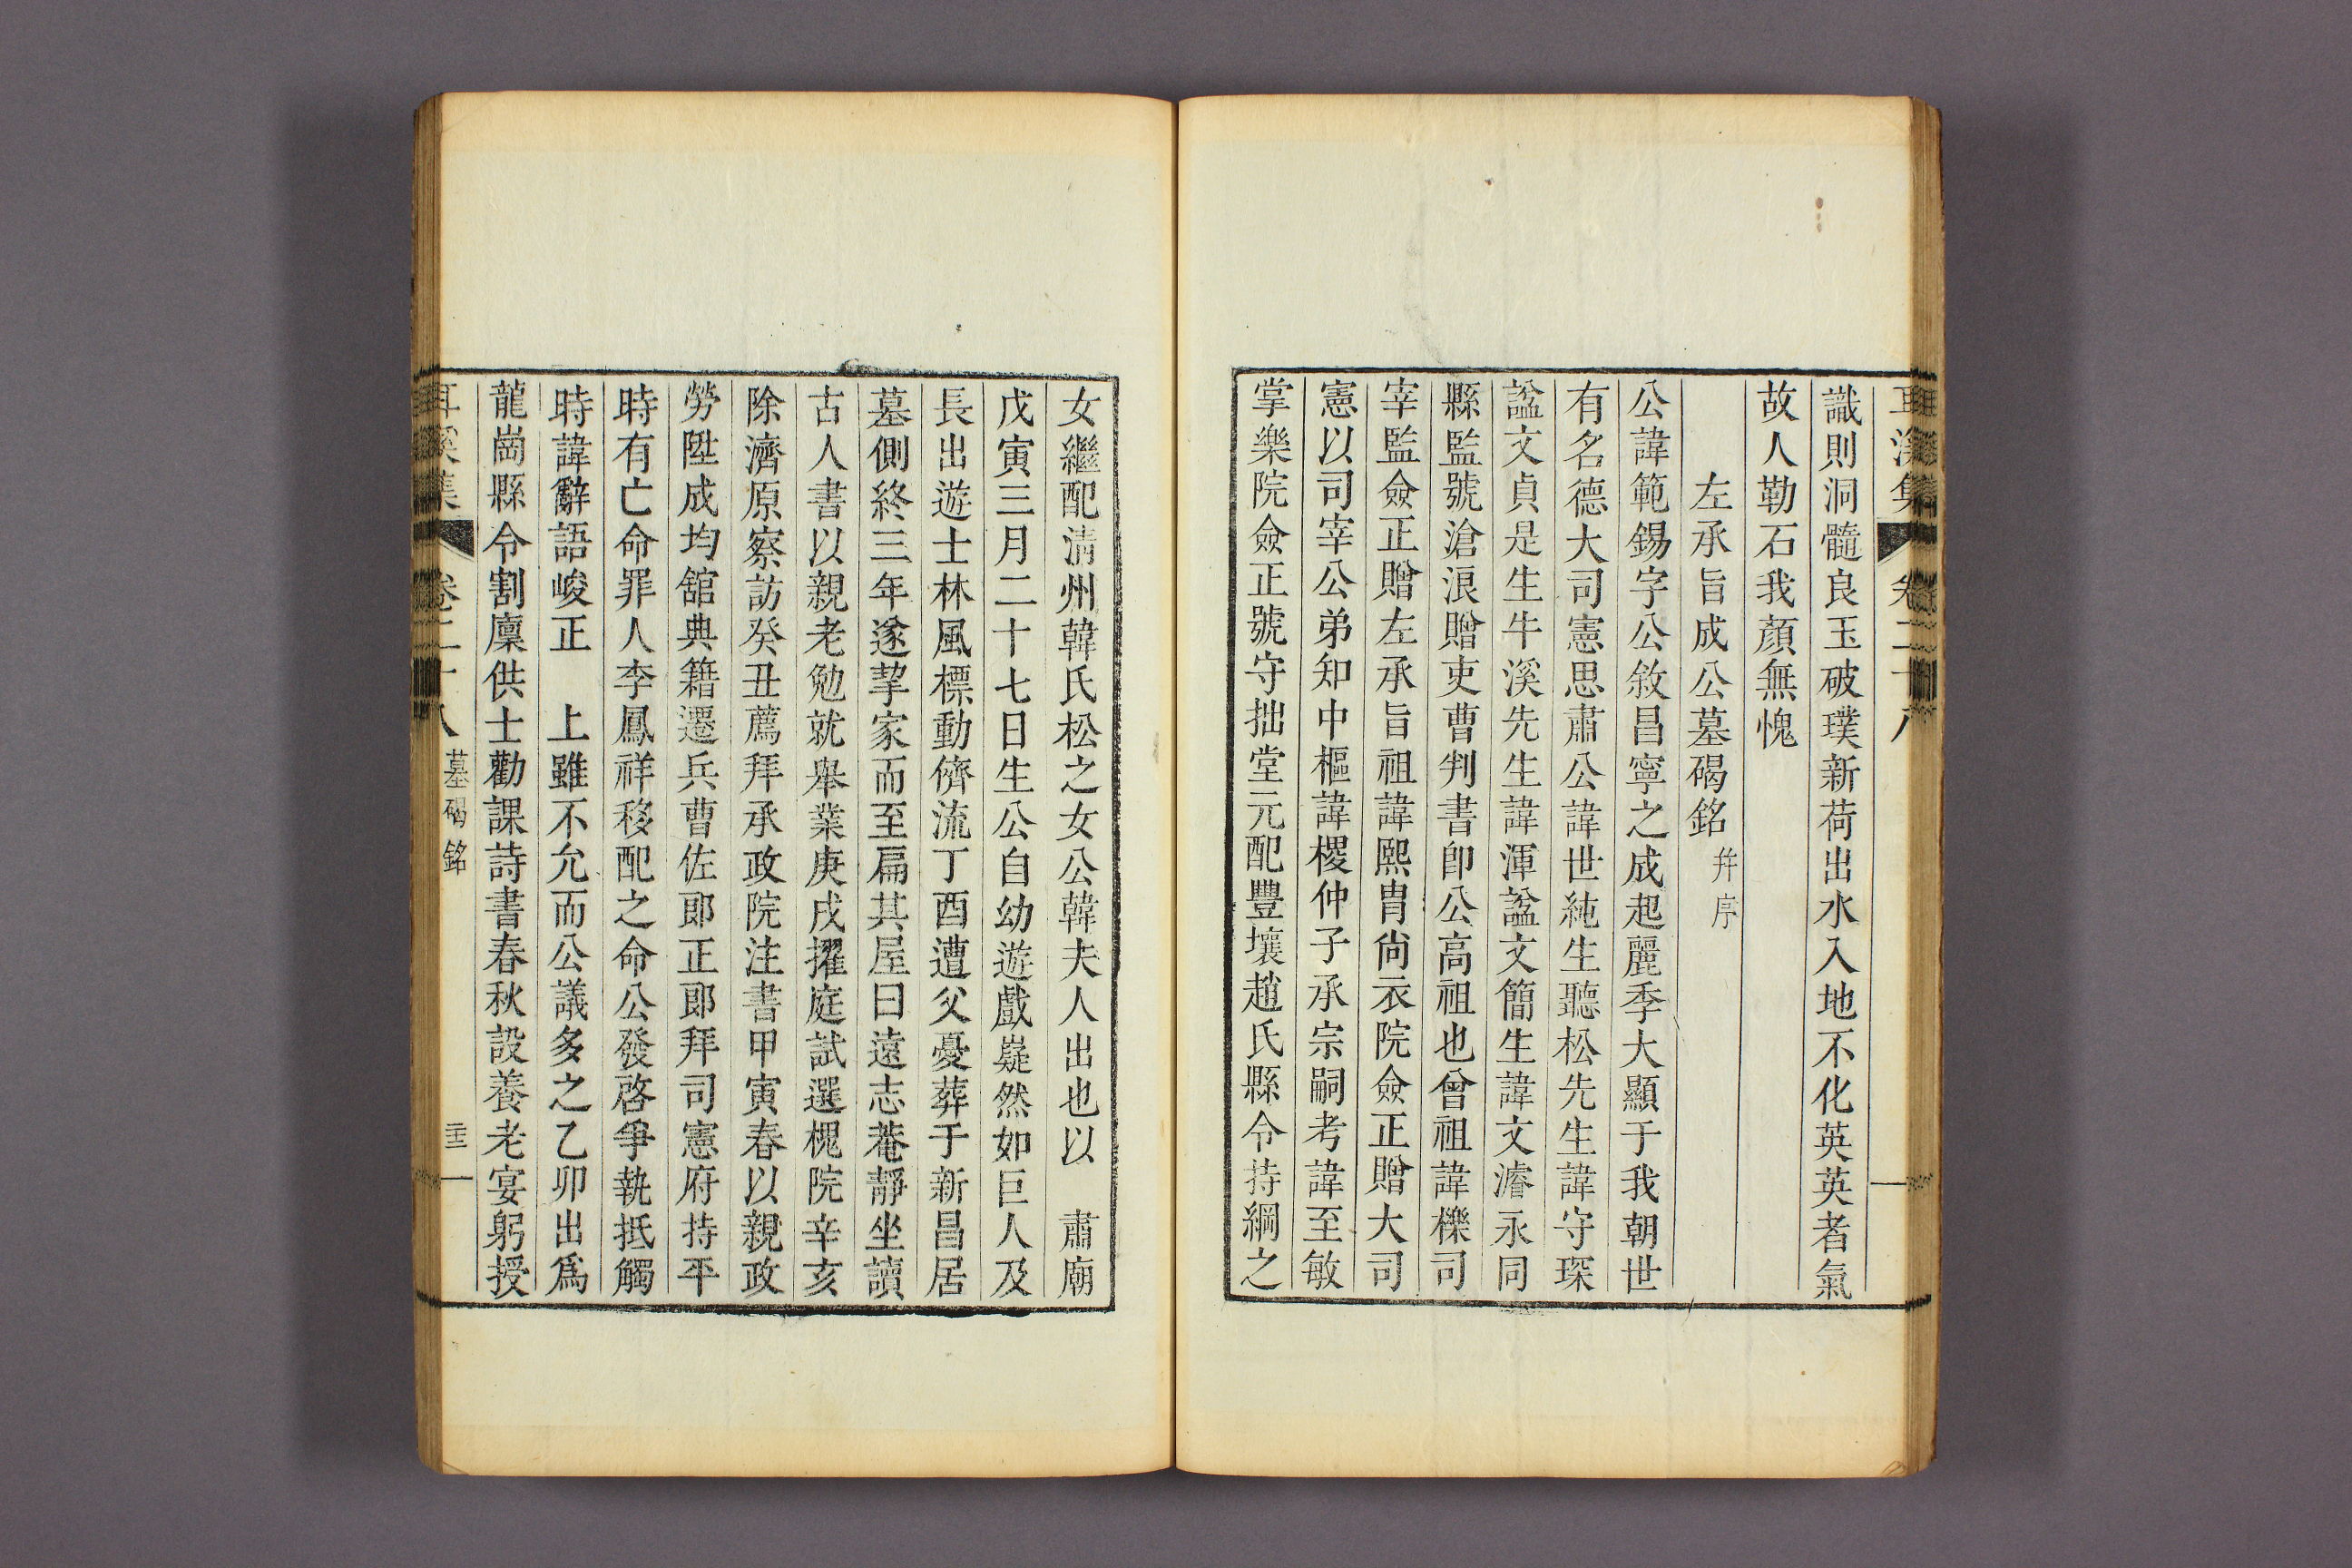 耳溪集 卷二十八
識則洞髓良玉破璞新荷出水入地不化英英者氣
故人勒石我顔無愧
左承旨成公墓碣銘 幷序
公諱範錫字公敘昌寧之成起麗季大顯于我朝世
有名德大司憲思肅公諱世純生聽松先生諱守琛
諡文貞是生牛溪先生諱渾諡文簡生諱文濬永同
縣監號滄浪贈吏曹判書卽公高祖也曾祖諱櫟司
宰監僉正贈左承旨祖諱熙胄尙衣院僉正贈大司
憲以司宰公弟知中樞諱㮨仲子承宗嗣考諱至敏
掌樂院僉正號守拙堂元配豐壤趙氏縣令持綱之
女繼配淸州韓氏松之女公韓夫人出也以 肅廟
戊寅三月二十七日生公自幼遊戲嶷然如巨人及
長出遊士林風標動儕流丁酉遭父憂葬于新昌居
墓側終三年遂挈家而至扁其屋曰遠志菴靜坐讀
古人書以親老勉就舉業庚戌擢庭試選槐院辛亥
除濟原察訪癸丑薦拜承政院注書甲寅春以親政
勞陞成均舘典籍遷兵曹佐郞正郞拜司憲府持平
時有亡命罪人李鳳祥移配之命公發啓爭執抵觸
時諱辭語峻正 上雖不允而公議多之乙卯出爲
龍崗縣令割廩供士勸課詩書春秋設養老宴躬授
耳溪集 卷二十八 墓碣銘 二十三